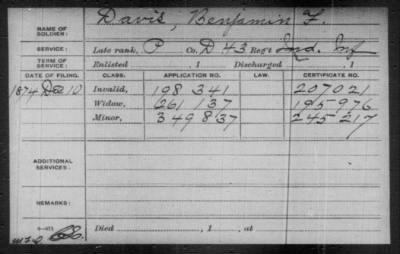 Davis, Benjamin F.
NAME OF SOLDIER:
SERVICE: Late rank, P Co. D 43 Reg't Ind. Inf
TERM OF SERVICE: Enlisted , 1 Discharged , 1
DATE OF FILING. CLASS. APPLICATION NO. LAW. CERTIFICATE NO.
1874 Dec 10 Invalid, 198 341 207021
Widow, 261 137 195976
Minor, 349837 245217
ADDITIONAL SERVICES.
REMARKS:
Died , 1 , at